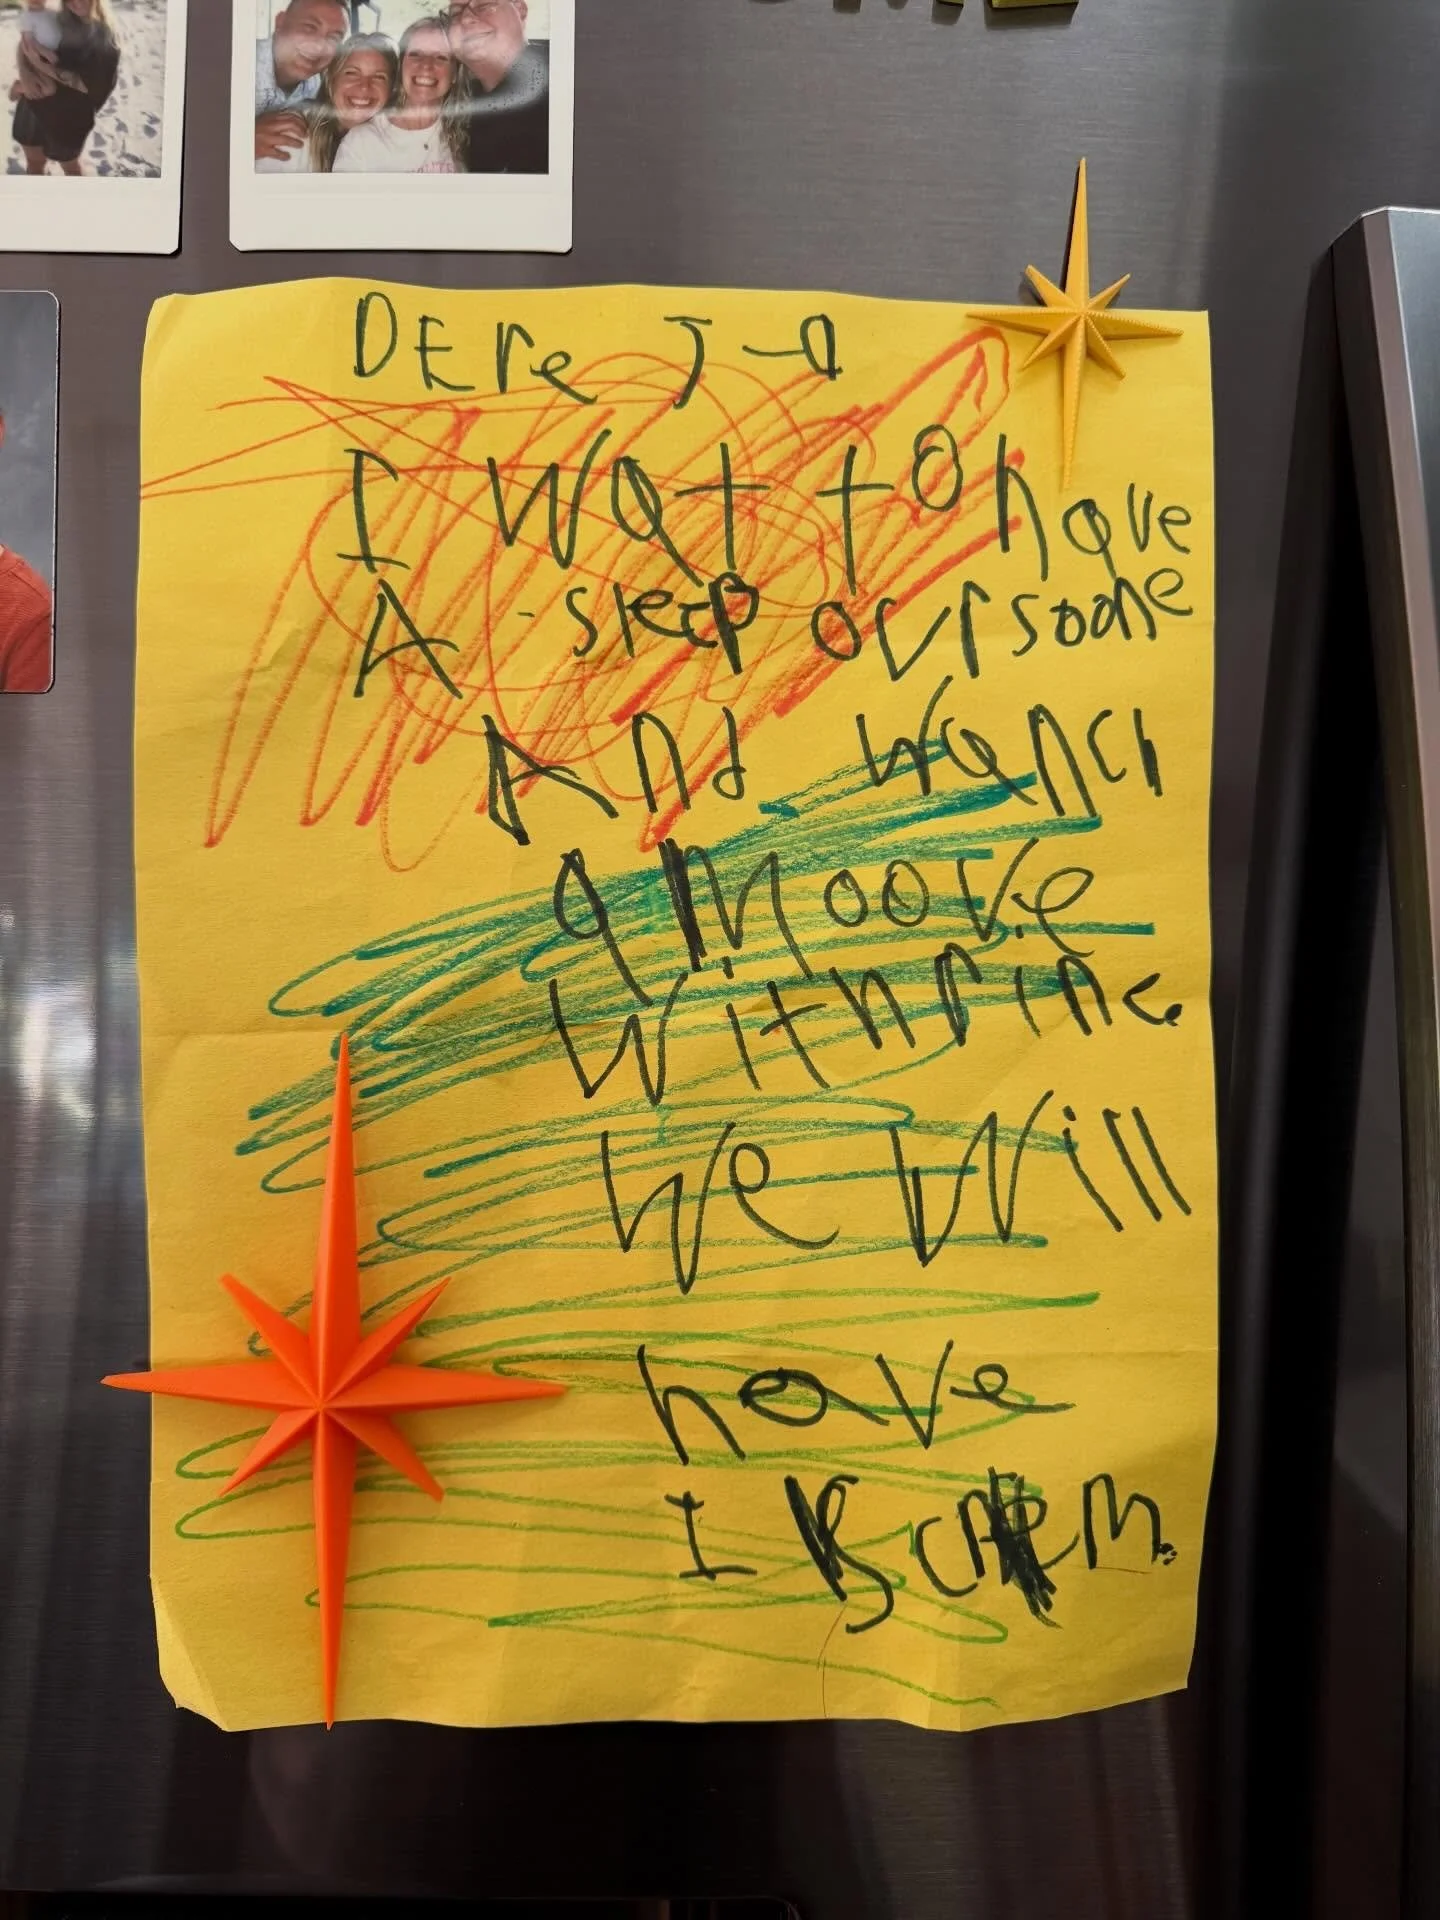 DEre J-a
I Wat to have
A sleep ovr soone
And wanch
a moove
With rine.
We Will
have
I screm.